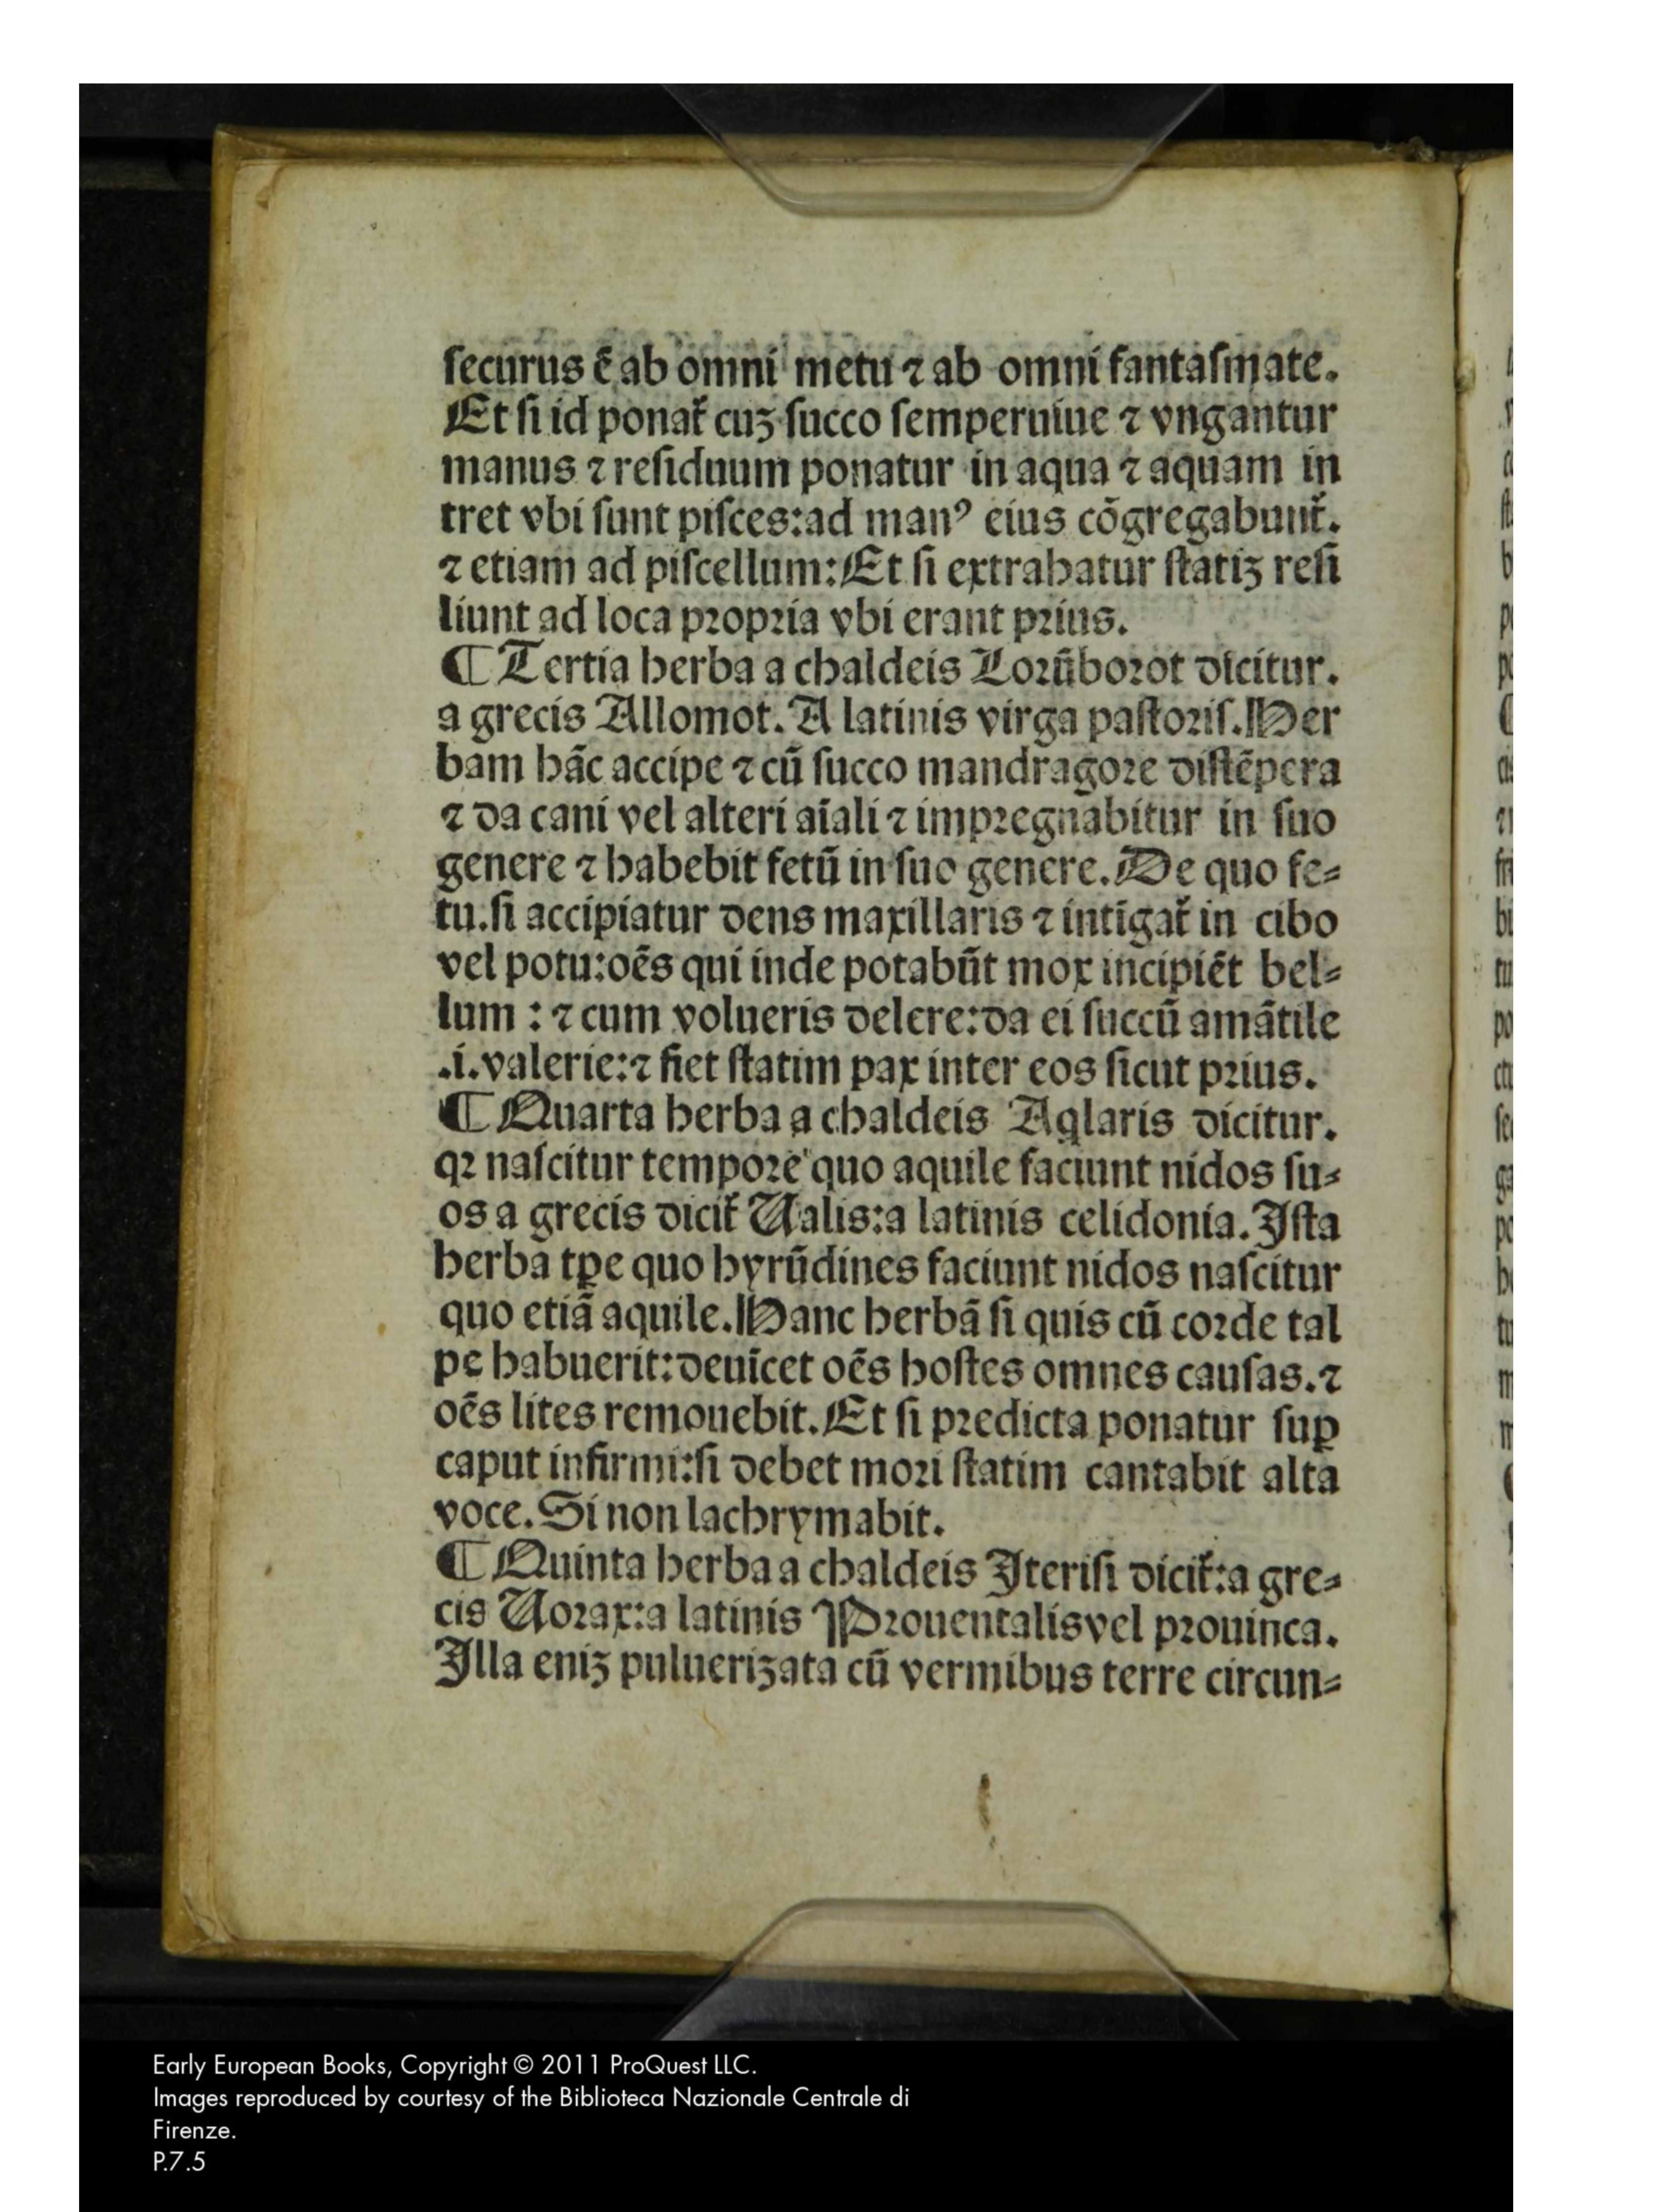 ſecurus ē ab omni metu ⁊ ab omni fantaſmate.
Et ſi id ponat᷑ cuꝫ ſucco ſemperuiue ⁊ vngantur
manus ⁊ reſiduum ponatur in aqua ⁊ aquam in
tret vbi ſunt piſces:ad manꝰ eius cōgregabunt᷑.
⁊ etiam ad piſcellum:Et ſi extrahatur ſtatiꝫ reſi
liunt ad loca propria vbi erant prius.
¶ Tertia herba a chaldeis Lorūborot dicitur.
a grecis Allomot. A latinis virga paſtoriſ. Her
bam hāc accipe ⁊ cū ſucco mandragore diſtēpera
⁊ da cani vel alteri aīali ⁊ impregnabitur in ſuo
genere ⁊ habebit fetū in ſuo genere. De quo fe⸗
tu.ſi accipiatur dens maxillaris ⁊ intīgat᷑ in cibo
vel potu:oēs qui inde potabūt mox incipiēt bel⸗
lum : ⁊ cum volueris delere:da ei ſuccū amātile
.i.valerie:⁊ fiet ſtatim pax inter eos ſicut prius.
¶ Quarta herba a chaldeis Aqlaris dicitur.
qꝛ naſcitur tempore quo aquile faciunt nidos ſu⸗
os a grecis dicit᷑ Ualis:a latinis celidonia. Iſta
herba tꝑe quo hyrūdines faciunt nidos naſcitur
quo etiā aquile. Hanc herbā ſi quis cū corde tal
pe habuerit:deuīcet oēs hoſtes omnes cauſas.⁊
oēs lites remouebit. Et ſi predicta ponatur ſuꝑ
caput infirmi:ſi debet mori ſtatim cantabit alta
voce. Si non lachrymabit.
¶ Quinta herba a chaldeis Iteriſi dicit᷑:a gre⸗
cis Uorax:a latinis Prouentalis vel prouinca.
Illa eniꝫ puluerizata cū vermibus terre circun⸗
Early European Books, Copyright © 2011 ProQuest LLC.
Images reproduced by courtesy of the Biblioteca Nazionale Centrale di
Firenze.
P.7.5